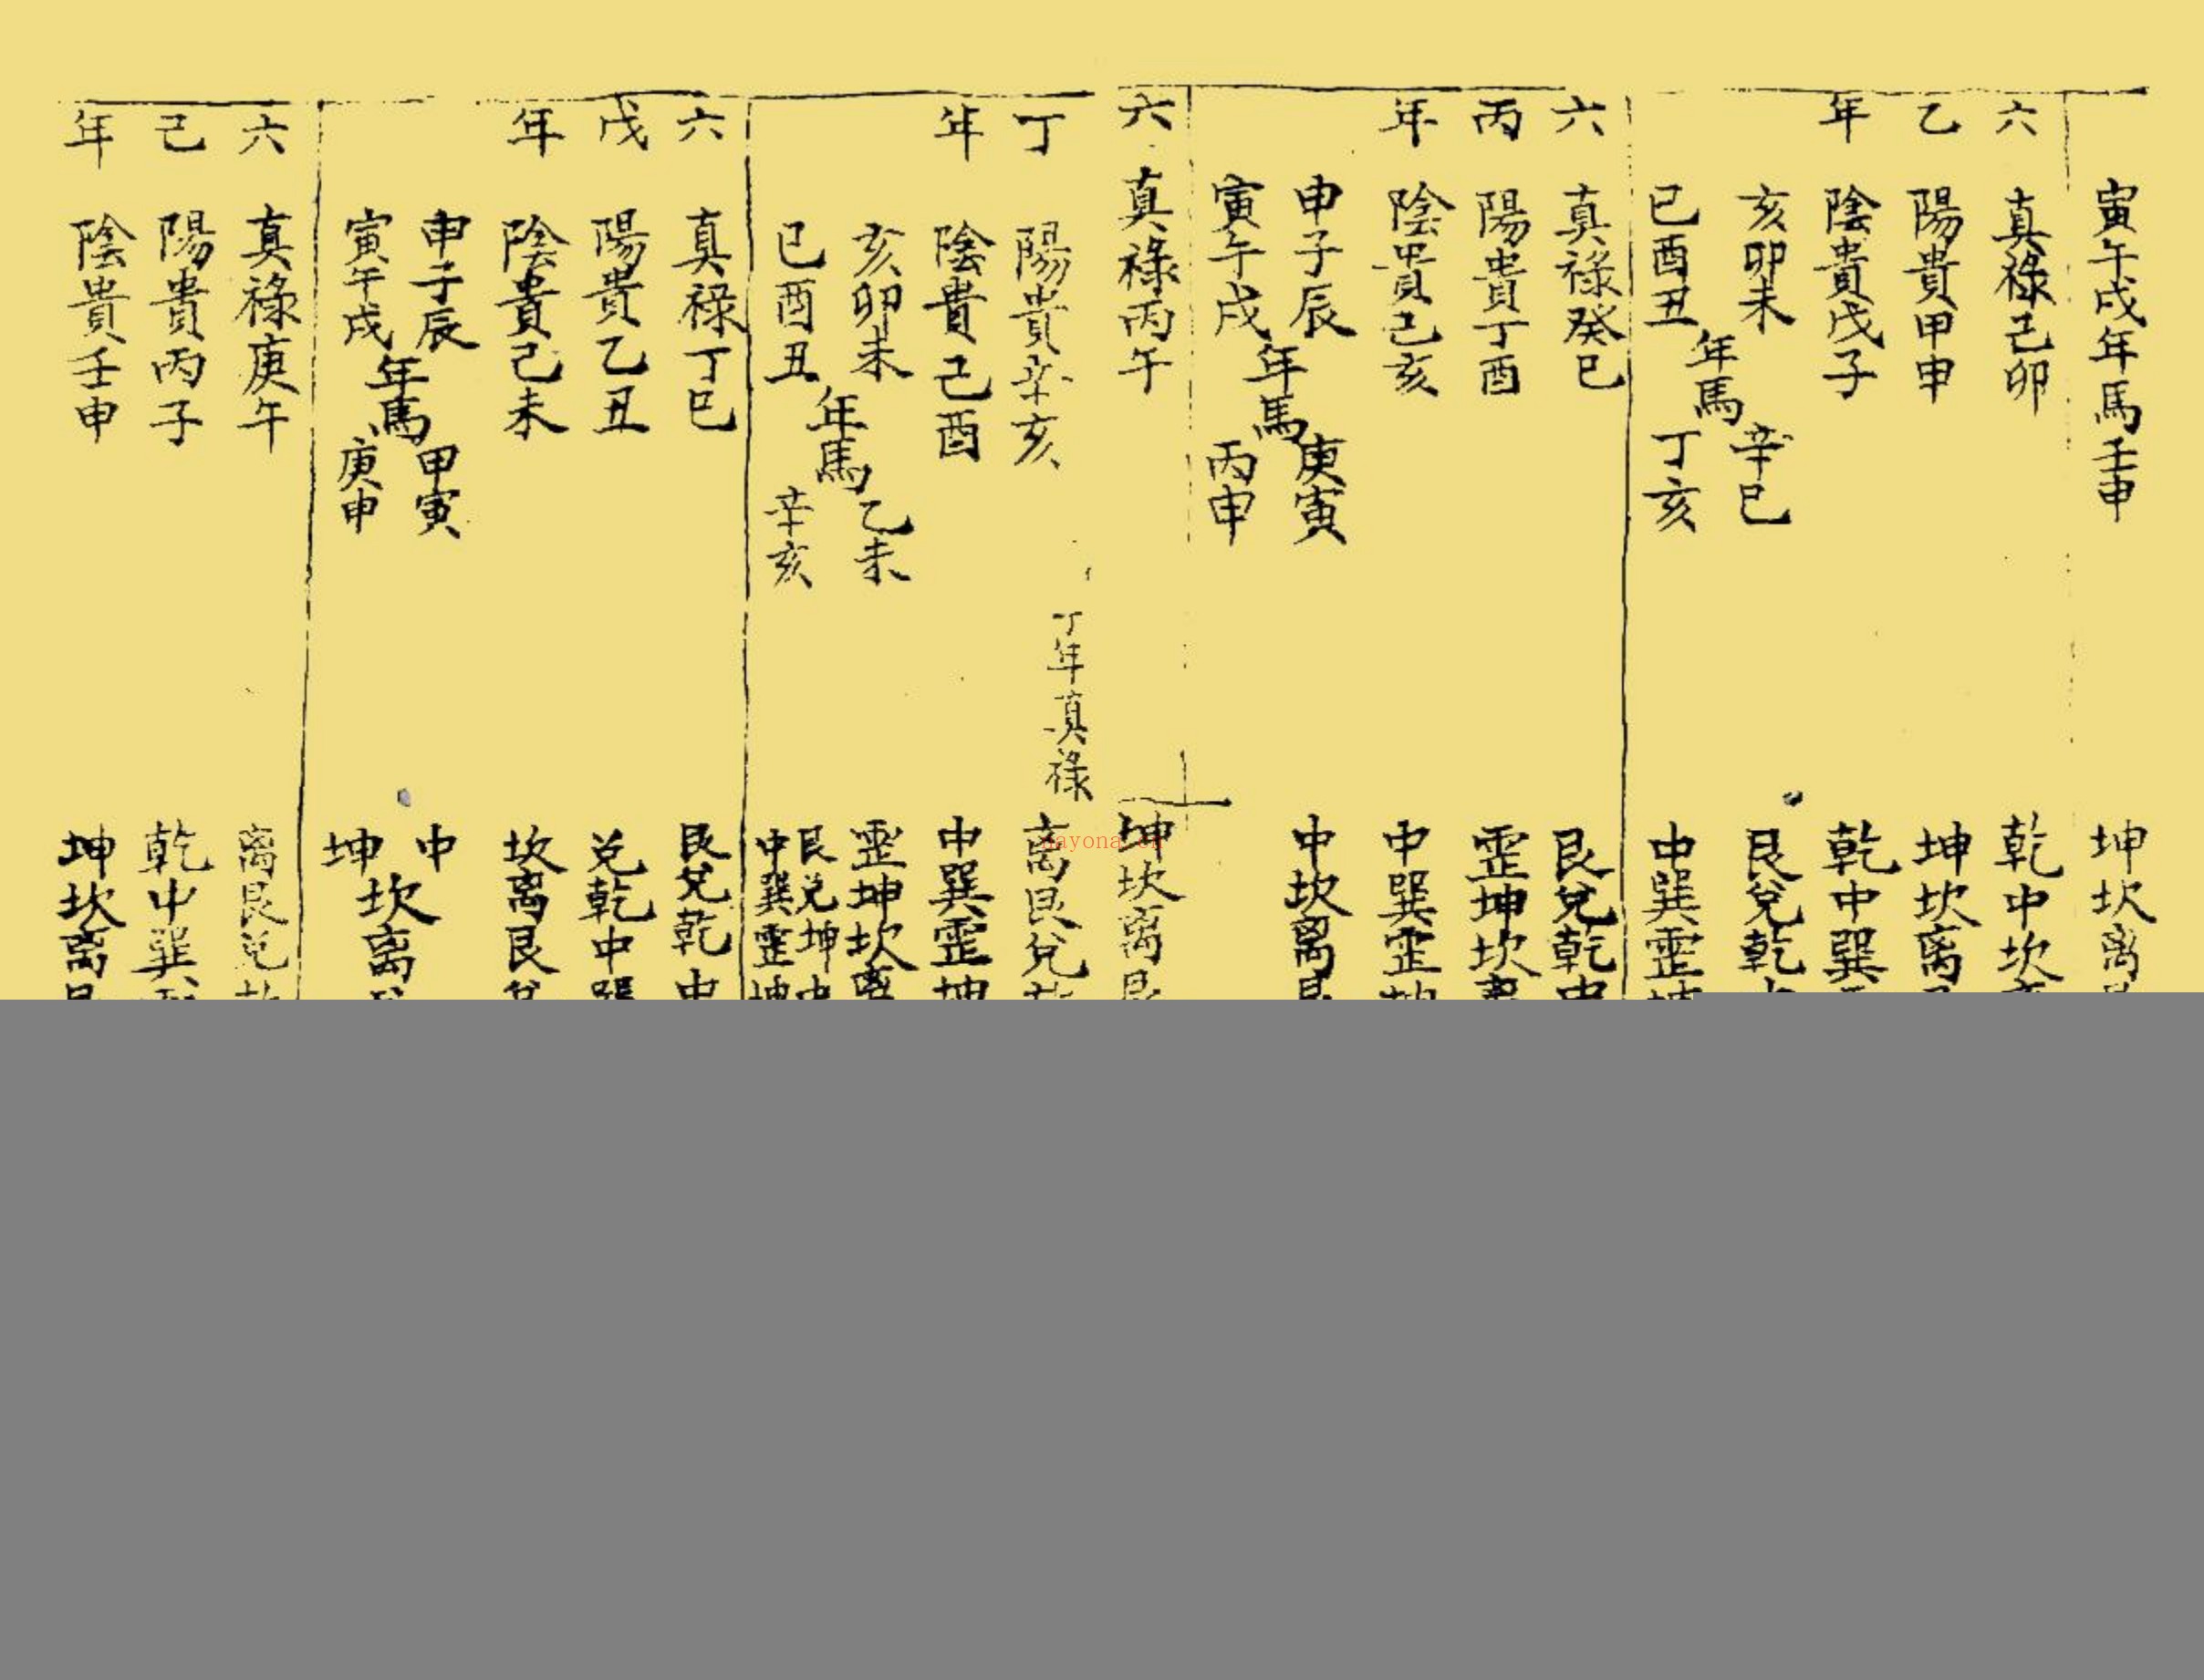 寅午戌年馬壬申 坤坎离
六 真祿己卯 乾中坎
乙 陽貴甲申 坤坎离
年 陰貴戊子 乾中巽
亥卯未 年馬 辛巳 艮兌乾
巳酉丑 丁亥 中巽震
六 真祿癸巳 艮兌乾中
丙 陽貴丁酉 震坤坎
年 陰貴己亥 中巽震
申子辰 年馬 庚寅 中坎离
寅午戌 丙申
六 真祿丙午 坤坎离
丁 陽貴辛亥 丁年真祿 离艮兌
年 陰貴己酉 中巽震坤
亥卯未 年馬 乙未 震坤坎离
巳酉丑 辛亥 艮兌坤中
中巽震坤
六 真祿丁巳 艮兌乾中
戊 陽貴乙丑 兌乾中
年 陰貴己未 坎离艮
申子辰 年馬 甲寅 中坎离
寅午戌 庚申 坤
六 真祿庚午 离艮兌
己 陽貴丙子 乾中巽
年 陰貴壬申 坤坎离
nayona.cn